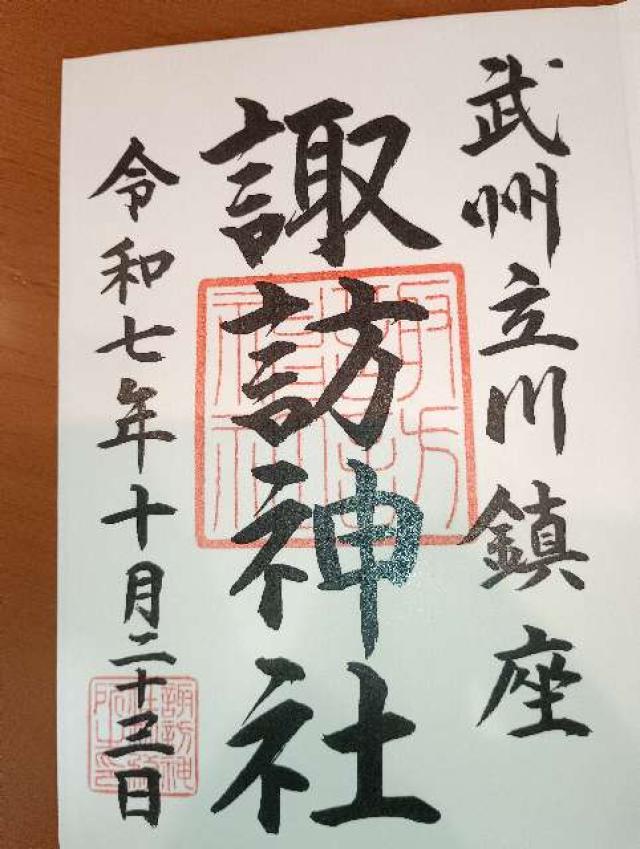 武州立川鎮座
諏訪神社
令和七年十月二十三日